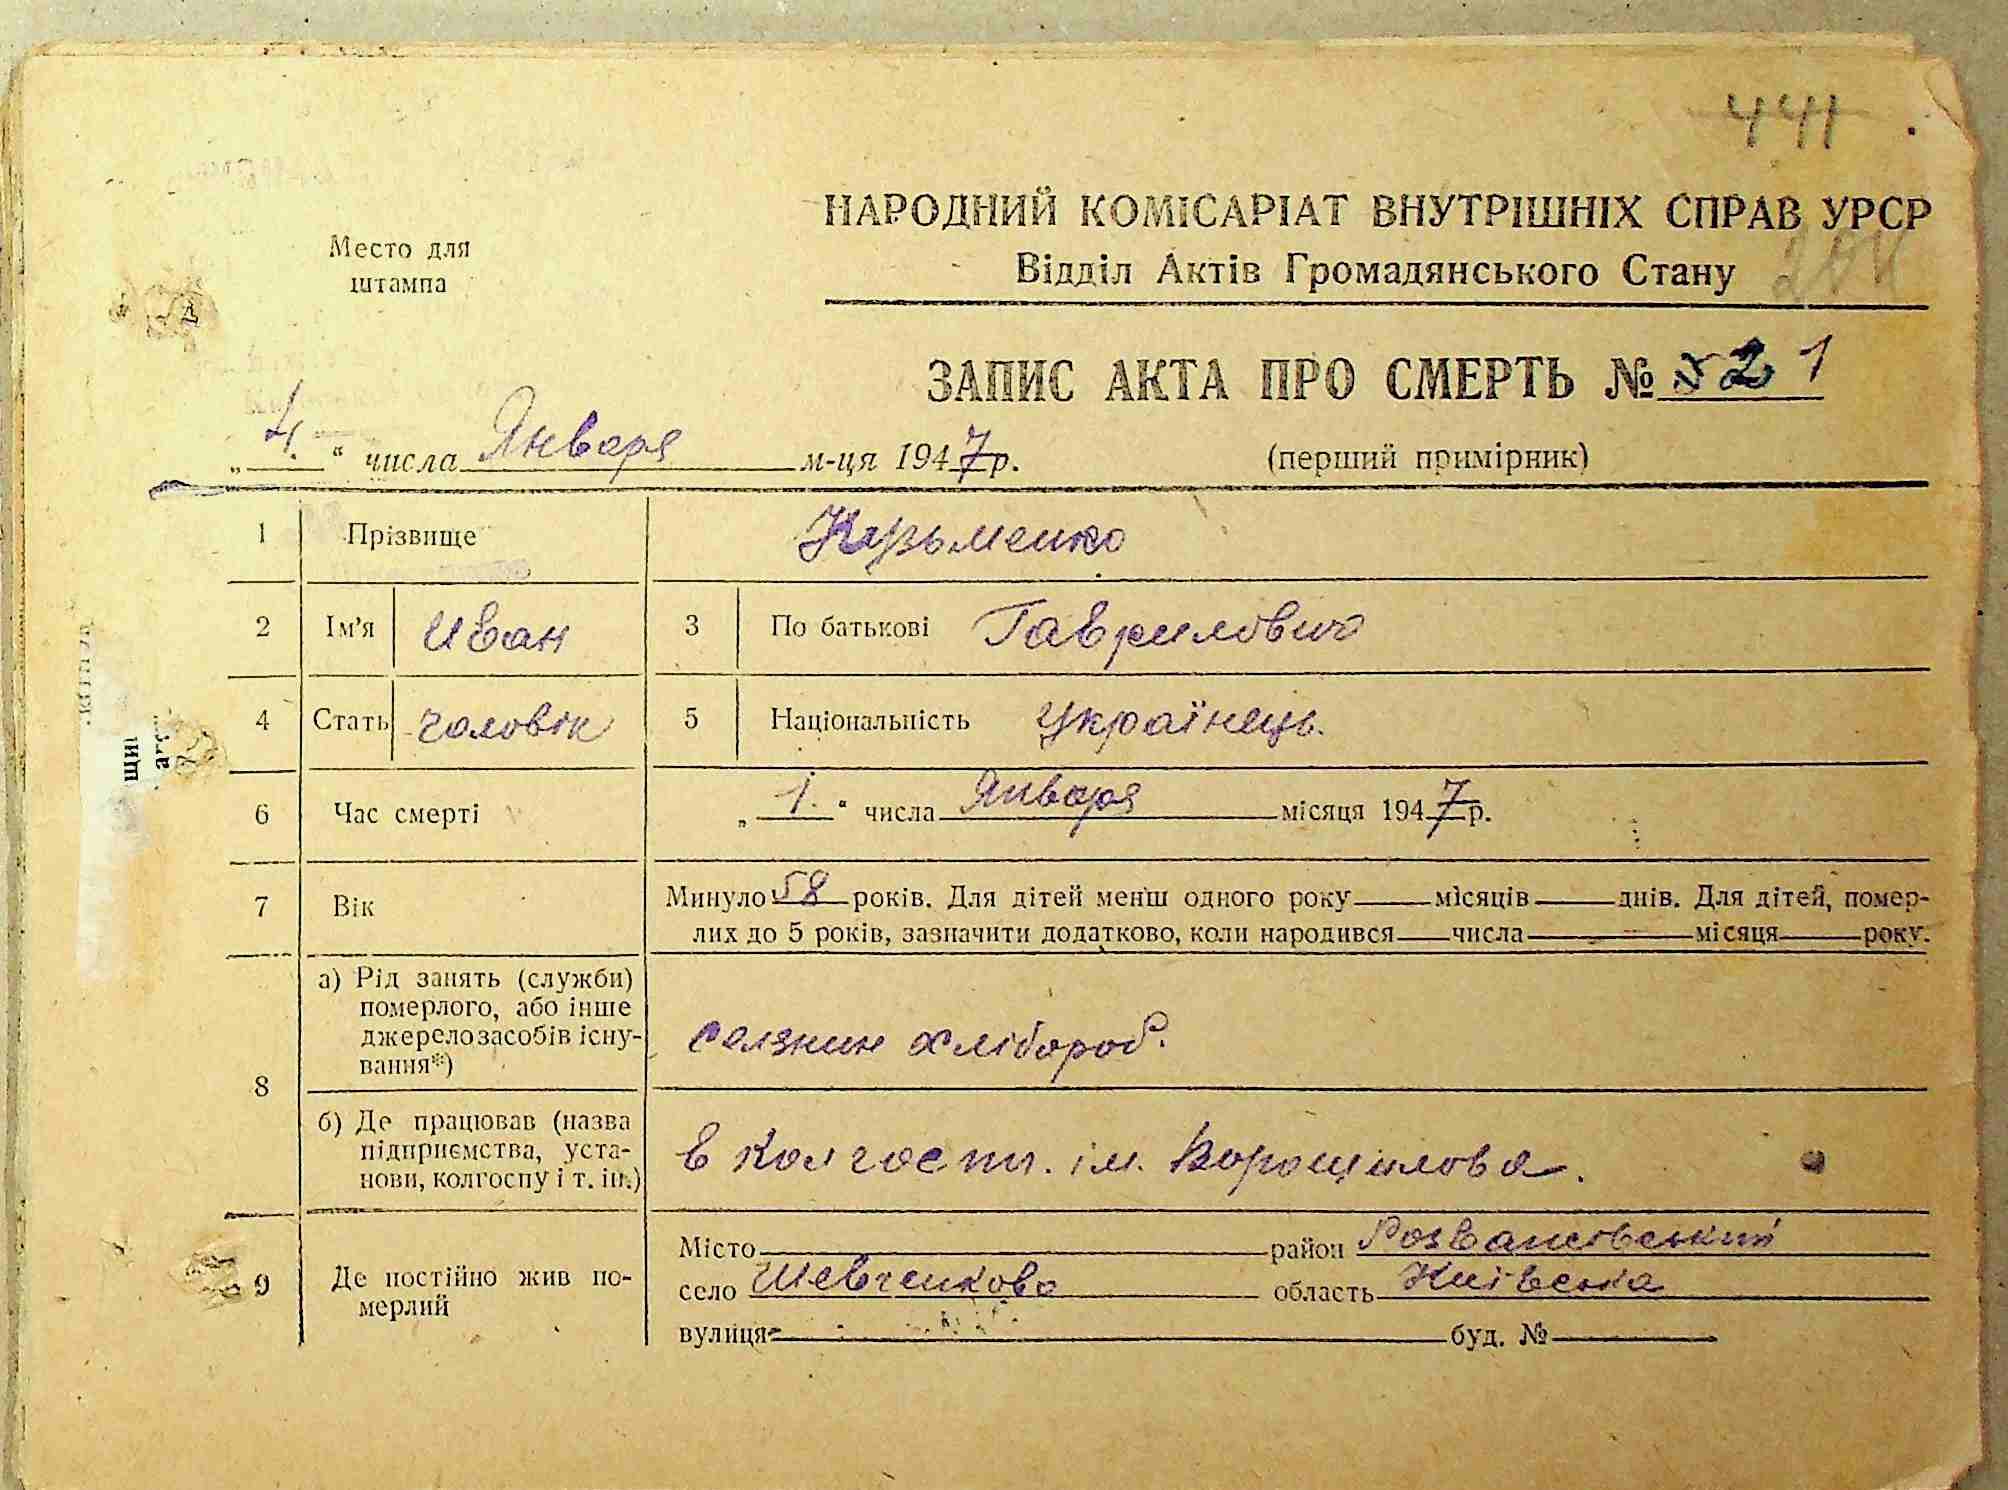 441
НАРОДНИЙ КОМІСАРІАТ ВНУТРІШНІХ СПРАВ УРСР
Место для
штампа
Відділ Актів Громадянського Стану
ЗАПИС АКТА ПРО СМЕРТЬ № 2 1
„4.“ числа Января м-ця 1947 р. (перший примірник)
1 Прізвище Кузьменко
2 Ім'я Иван 3 По батькові Гаврилович
4 Стать чоловік 5 Національність Українець.
6 Час смерті „1.“ числа Января місяця 1947 р.
7 Вік Минуло 58 років. Для дітей менш одного року місяців днів. Для дітей, помер-
лих до 5 років, зазначити додатково, коли народився числа місяця року.
8 а) Рід занять (служби)
померлого, або інше
джерело засобів існу-
вання*)
селянин хлібороб.
б) Де працював (назва
підприємства, уста-
нови, колгоспу і т. ін.)
в колгосп. ім. Ворошилова.
9 Де постійно жив по-
мерлий
Місто район Розважівський
село Шевченкова область Київська
вулиця буд. №
щин